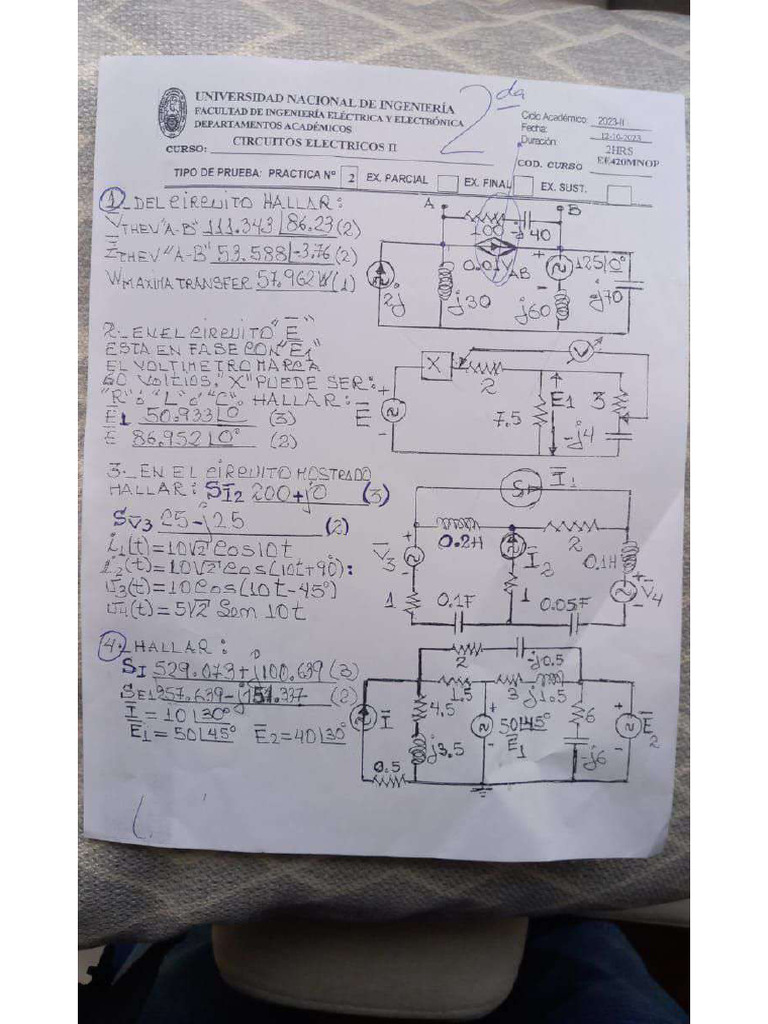 2da
UNIVERSIDAD NACIONAL DE INGENIERÍA
FACULTAD DE INGENIERÍA ELÉCTRICA Y ELECTRÓNICA
DEPARTAMENTOS ACADÉMICOS
CURSO: CIRCUITOS ELECTRICOS II
Ciclo Académico: 2023-II
Fecha: 12-10-2023
Duración: 2HRS
COD. CURSO EE420MNOP
TIPO DE PRUEBA: PRACTICA Nº 2 EX. PARCIAL EX. FINAL EX. SUST.
1._DEL CIRCUITO HALLAR:
V̅THEV "A-B" 111.343∠86.23 (2)
Z̅THEV "A-B" 53.588∠-3.76 (2)
WMAXIMA TRANSFER 57.962W (1)
A
B
100
-j40
0.01VAB
2j
j30
+
125∠0°
-
j60
j70
2._EN EL CIRCUITO "E̅"
ESTA EN FASE CON "E̅1"
EL VOLTIMETRO MARCA
60 VOLTIOS. "X" PUEDE SER:
"R" ó "L" ó "C". HALLAR:
E̅1 50.933∠0 (3)
E̅ 86.952∠0° (2)
X
V
2
+
E̅
-
7.5
E1
3
-j4
3._EN EL CIRCUITO MOSTRADO
HALLAR: SI̅2 200+j0 (3)
SV̅3 25-j25 (2)
i1(t)=10√2 cos10t
i2(t)=10√2 cos(10t+90°):
v3(t)=10cos(10t-45°)
v4(t)=5√2 Sen 10t
I̅1
0.2H
2
+
V̅3
-
I̅2
0.1H
1
1
0.1F
0.05F
+
V̅4
-
4._HALLAR:
SI 529.073+j100.639 (3)
SE1 357.639-j151.337 (2)
I̅ = 10∠30°
E̅1 = 50∠45° E̅2=40∠30°
2
-j0.5
1.5
3
j1.5
I̅
4.5
j3.5
0.5
+
50∠45°
-
E̅1
6
-j6
+
E̅2
-